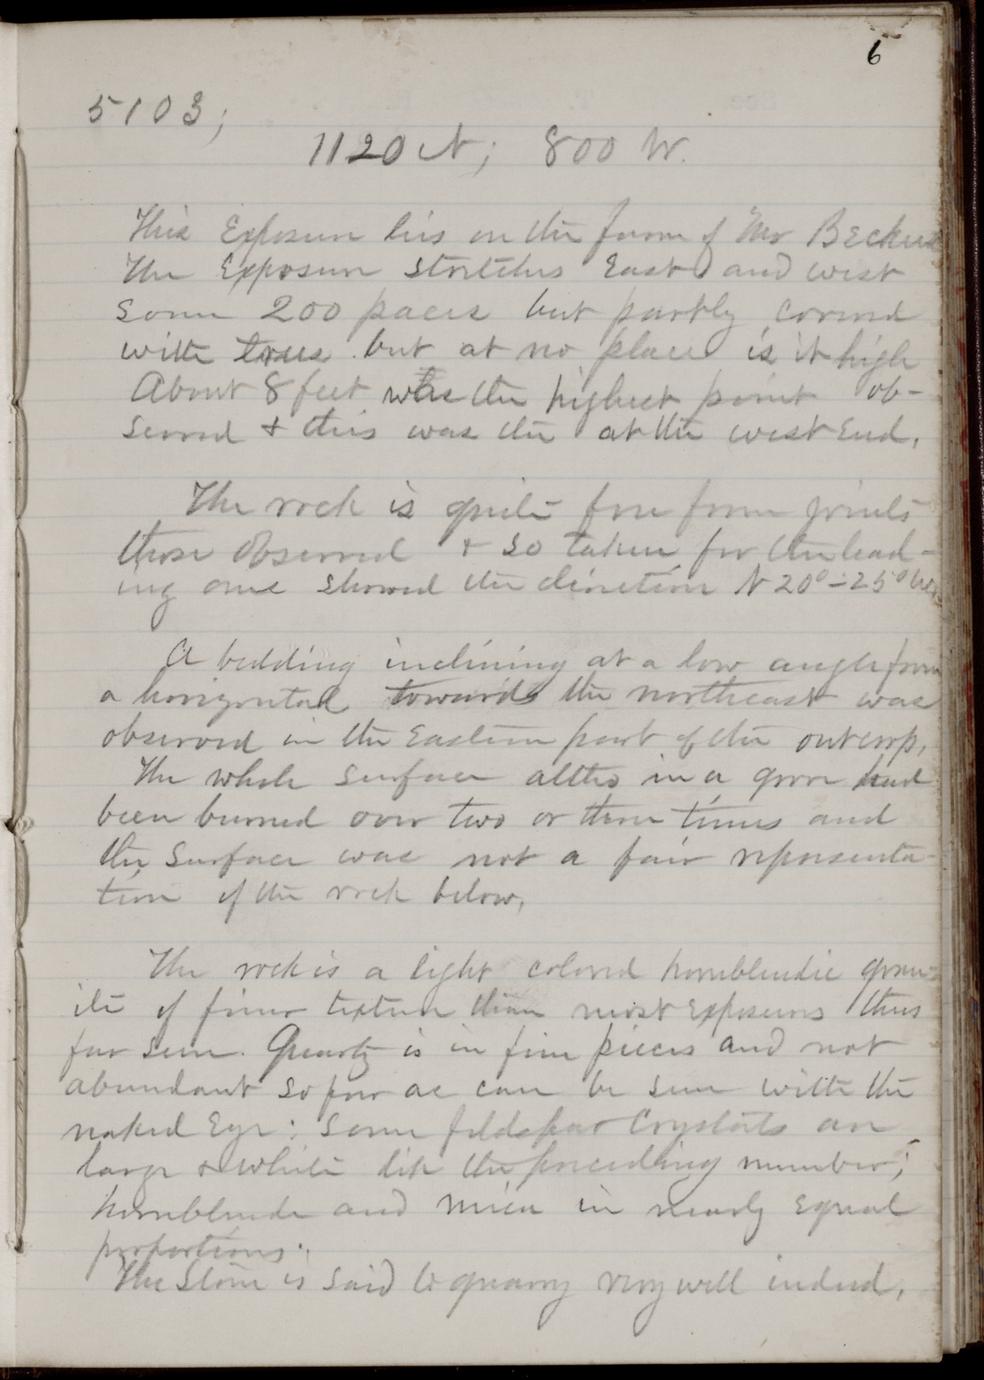 6
5103;
1120 N; 800 W.
This Exposure lies on the farm of Mr Becker
The Exposure stretches East and west
some 200 paces but partly covered
with trees but at no place is it high
About 8 feet was the highest point ob-
served & this was the at the west End.
The rock is quite free from joints
those observed & so taken for the lead-
ing one showed the direction N 20°-25° W
A bedding inclining at a low angle from
a horizontal towards the northeast was
observed in the Eastern part of the outcrop.
The whole surface altho in a grove had
been burned over two or three times and
the surface was not a fair representa-
tion of the rock below.
The rock is a light colored hornblendic gran-
ite of finer texture than most exposures thus
far seen. Quartz is in fine pieces and not
abundant so far as can be seen with the
naked Eye: some feldspar Crystals are
large & white like the preceeding number;
hornblende and mica in nearly equal
proportions.
The Stone is said to quarry very well indeed.